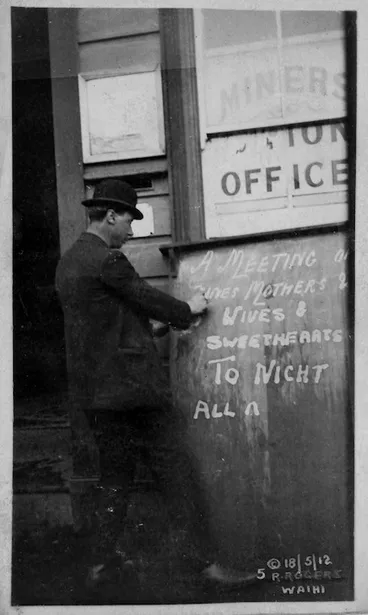 MINERS
UNION
OFFICE
A MEETING
MOTHERS &
WIVES &
SWEETHEARTS
TO NIGHT
ALL
© 18/5/12
5 R. ROGERS
WAIHI